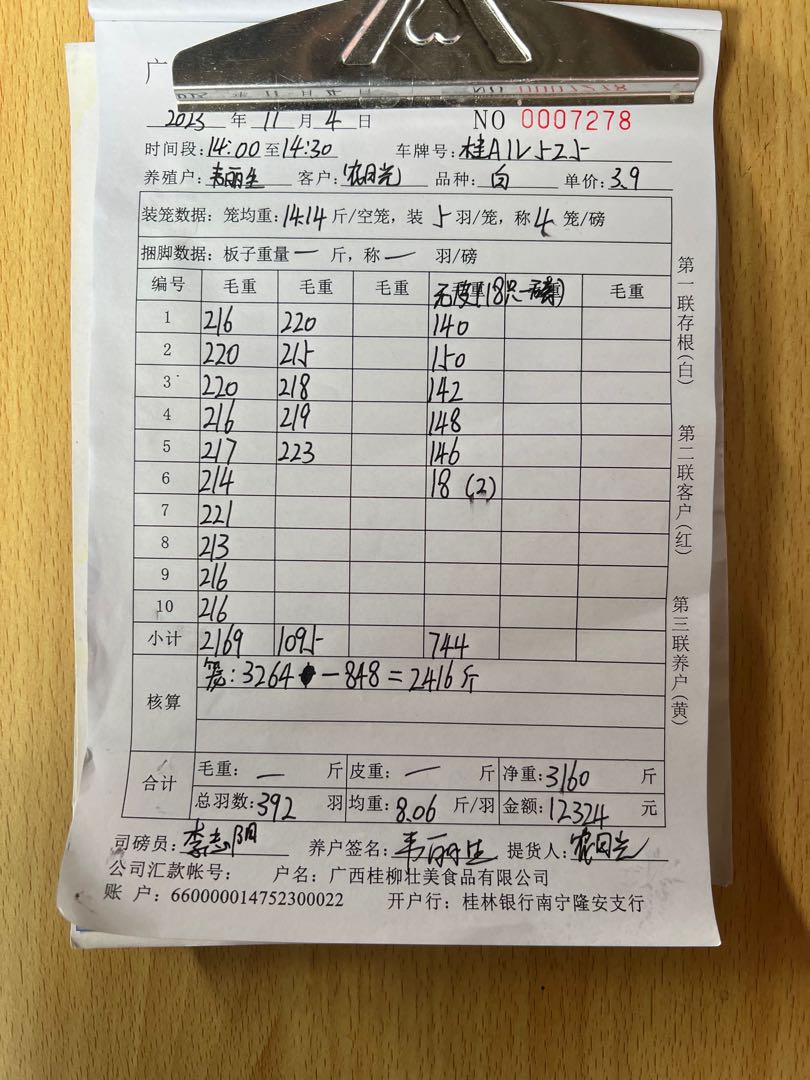 广
2023 年 11 月 4 日 NO 0007278
时间段: 14:00 至 14:30 车牌号: 桂A1V525
养殖户: 韦丽生 客户: 农日光 品种: 白 单价: 3.9
装笼数据: 笼均重: 14.14 斤/空笼, 装 5 羽/笼, 称 4 笼/磅
捆脚数据: 板子重量 一 斤, 称 一 羽/磅
编号 毛重 毛重 毛重 无皮(18只一磅) 毛重
1 216 220 140
2 220 215 150
3 220 218 142
4 216 219 148
5 217 223 146
6 214 18 (2)
7 221
8 213
9 216
10 216
小计 2169 1095 744
核算 笼: 3264 - 848 = 2416斤
合计 毛重: 一 斤 皮重: 一 斤 净重: 3160 斤
总羽数: 392 羽 均重: 8.06 斤/羽 金额: 12324 元
司磅员: 李志阳 养户签名: 韦丽生 提货人: 农日光
公司汇款帐号: 户名: 广西桂柳壮美食品有限公司
账 户: 660000014752300022 开户行: 桂林银行南宁隆安支行
第一联存根(白)
第二联客户(红)
第三联养户(黄)